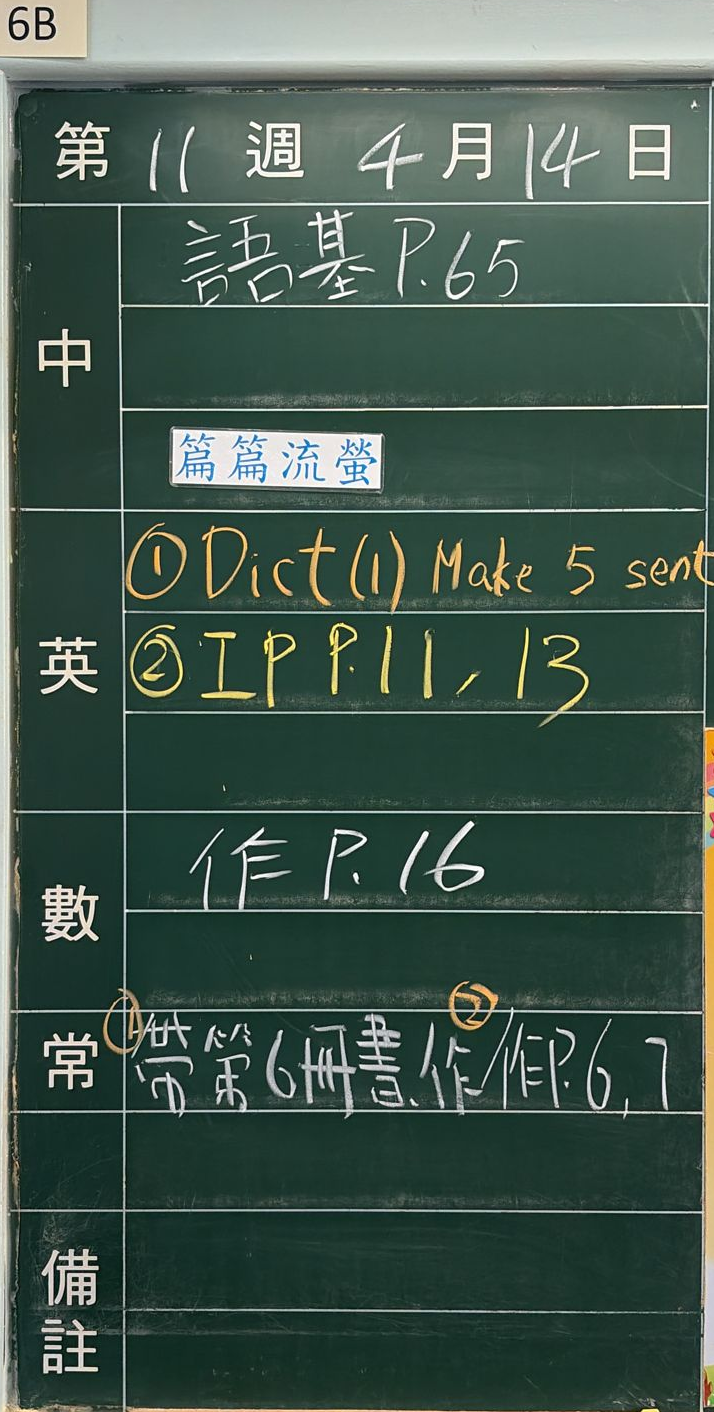 6B
第 11 週 4 月 14 日
中
語基 P.65
篇篇流螢
英
① Dict (1) Make 5 sent
② IP P.11, 13
數
作 P.16
常
① 帶第6冊書、作 ② 作P.6,7
備註